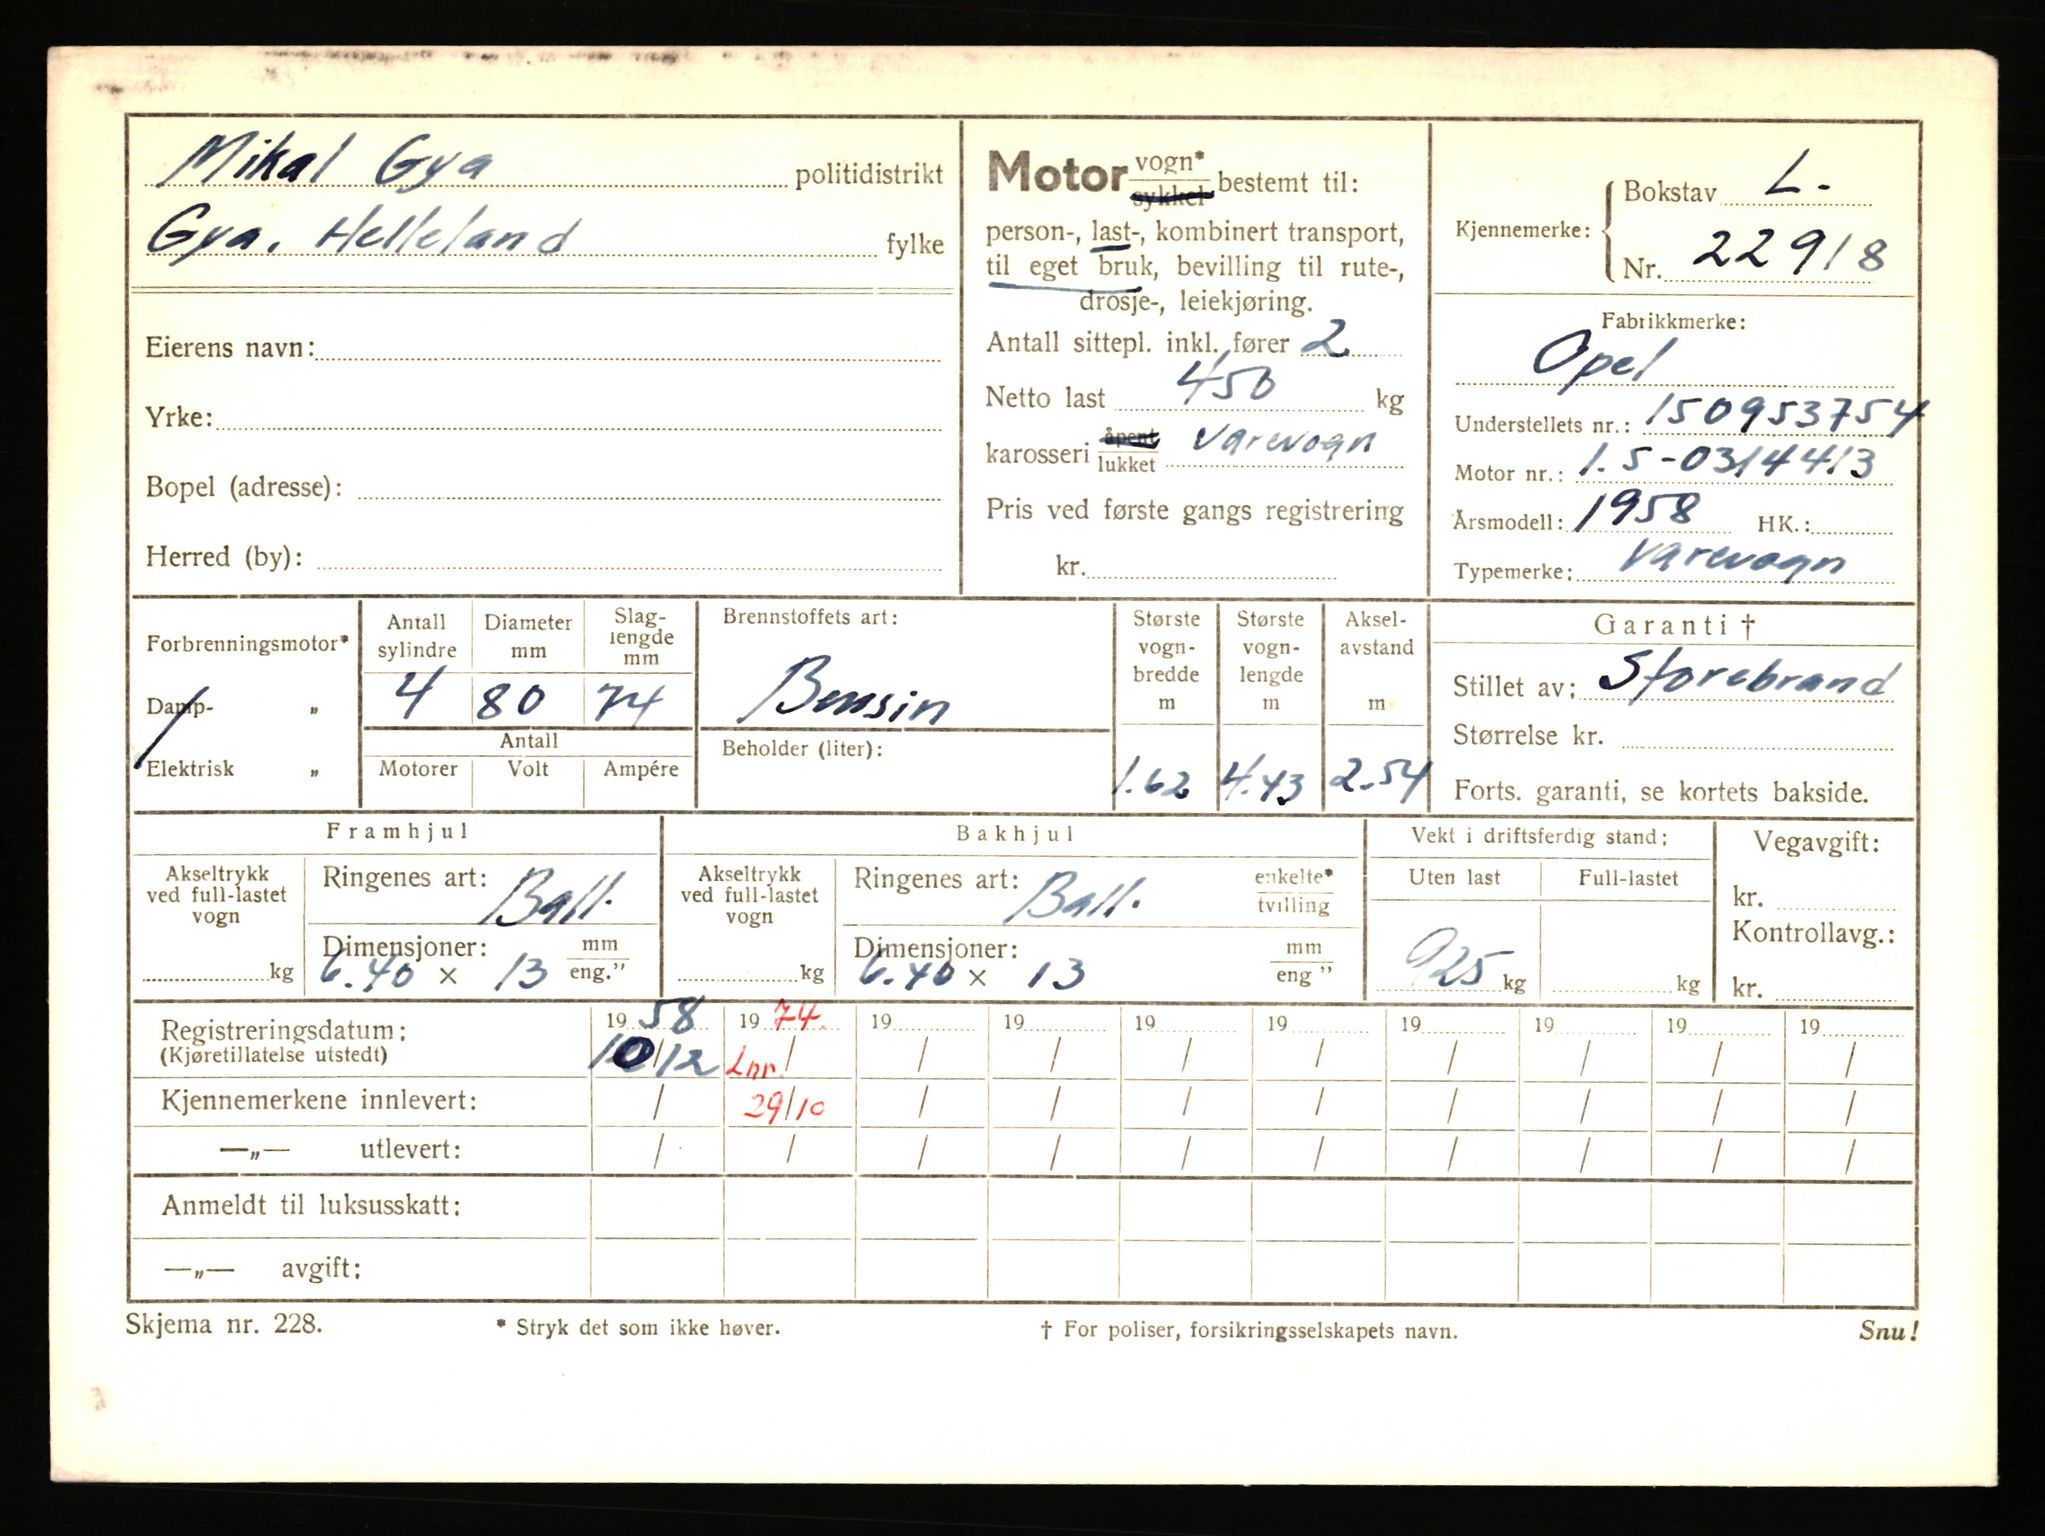 Mikal Gya politidistrikt
Gya. Helleland fylke
Eierens navn:
Yrke:
Bopel (adresse):
Herred (by):
Motor vogn* sykkel bestemt til:
person-, last-, kombinert transport,
til eget bruk, bevilling til rute-,
drosje-, leiekjøring.
Antall sittepl. inkl. fører 2
Netto last 450 kg
karosseri åpent lukket varevogn
Pris ved første gangs registrering
kr.
Kjennemerke: Bokstav L.
Nr. 22918
Fabrikkmerke:
Opel
Understellets nr.: 150953754
Motor nr.: 1.5-0314413
Årsmodell: 1958 HK.:
Typemerke: varevogn
Forbrenningsmotor*
Damp- „
Elektrisk „
Antall sylindre Diameter mm Slag-lengde mm
4 80 74
Antall
Motorer Volt Ampére
Brennstoffets art:
Bensin
Beholder (liter):
Største vogn-bredde m
1.62
Største vogn-lengde m
4.43
Aksel-avstand m
2.54
Garanti †
Stillet av: Storebrand
Størrelse kr.
Forts. garanti, se kortets bakside.
Framhjul
Akseltrykk ved full-lastet vogn
kg
Ringenes art: Ball.
Dimensjoner: mm
6.40 x 13 eng."
Bakhjul
Akseltrykk ved full-lastet vogn
kg
Ringenes art: Ball. enkelte* tvilling
Dimensjoner: mm
6.40 x 13 eng "
Vekt i driftsferdig stand:
Uten last Full-lastet
925 kg kg
Vegavgift:
kr.
Kontrollavg.:
kr.
Registreringsdatum: 19 58 19 74. 19 19 19 19 19 19 19 19
(Kjøretillatelse utstedt) 10/12 Lnr. / / / / / / / / /
Kjennemerkene innlevert: / 29/10 / / / / / / / /
—„— utlevert: / / / / / / / / / /
Anmeldt til luksusskatt:
—„— avgift:
Skjema nr. 228. * Stryk det som ikke høver. † For poliser, forsikringsselskapets navn. Snu!